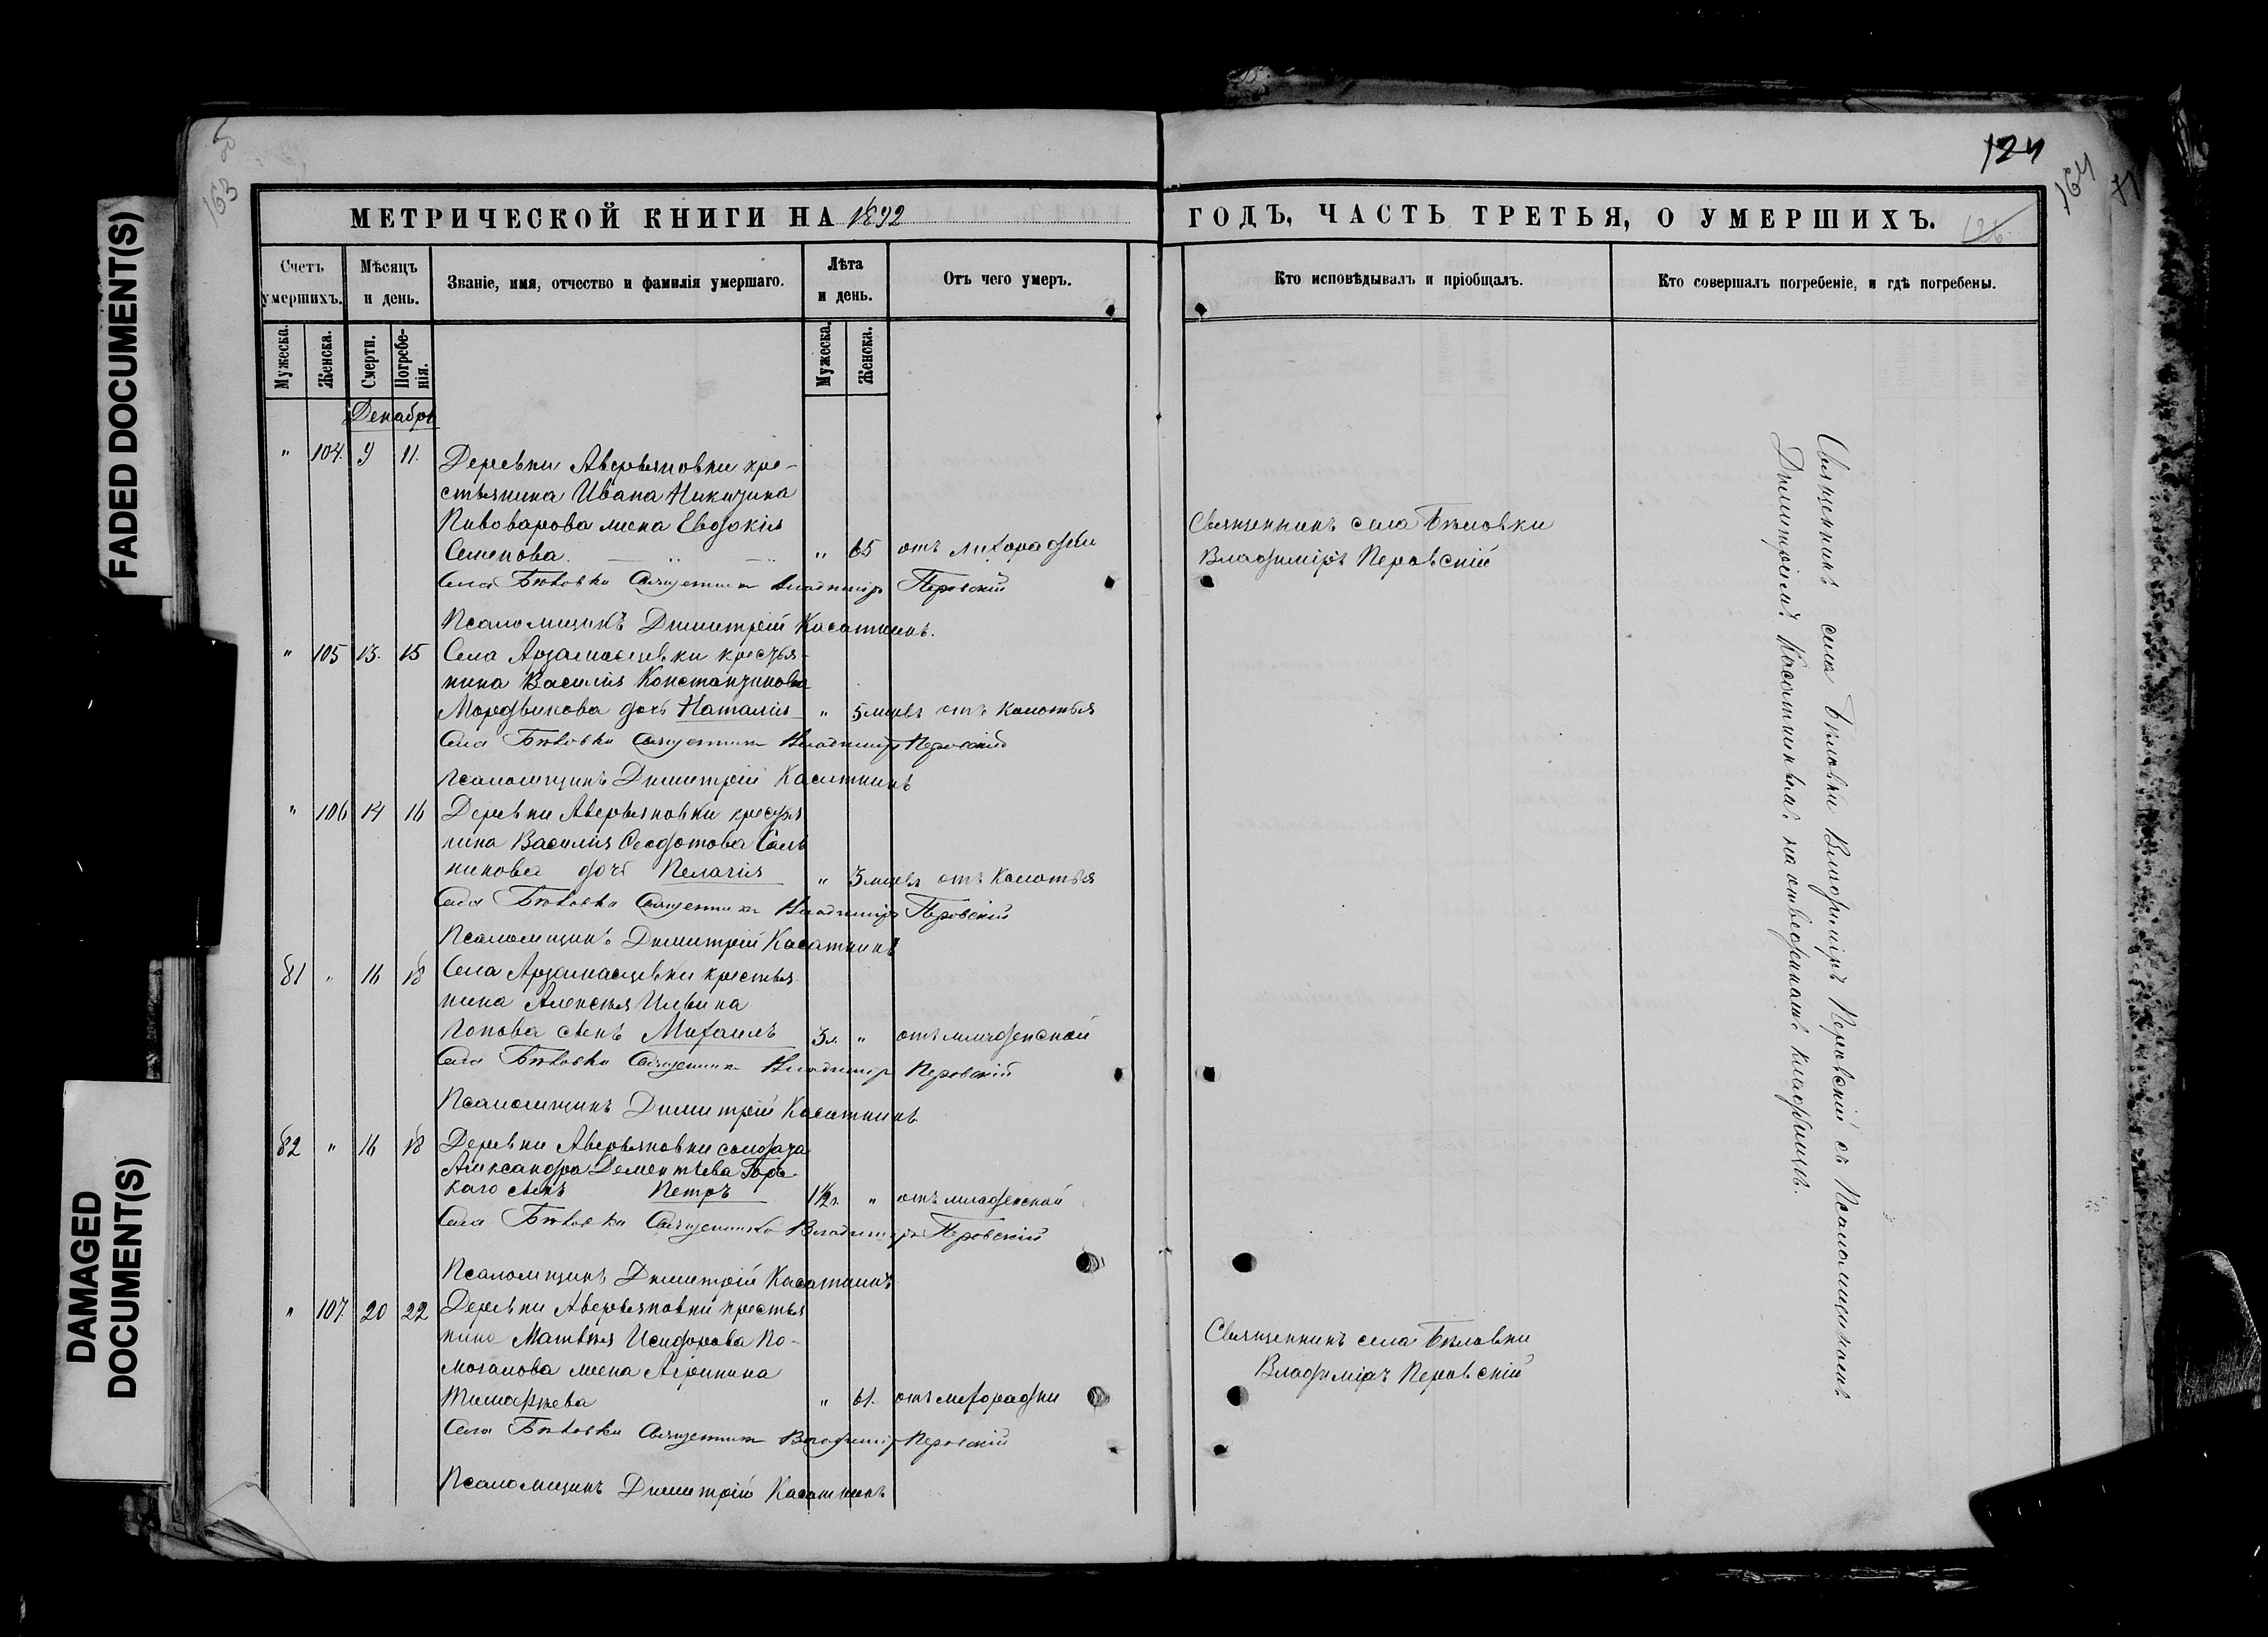 FADED DOCUMENT(S)
DAMAGED
DOCUMENT(S)
163
124
164
МЕТРИЧЕСКОЙ КНИГИ НА 1892
ГОДЪ, ЧАСТЬ ТРЕТЬЯ, О УМЕРШИХЪ.
126
Счетъ умершихъ.
Мѣсяцъ и день.
Званіе, имя, отчество и фамилія умершаго.
Лѣта и день.
Отъ чего умеръ.
Кто исповѣдывалъ и пріобщалъ.
Кто совершалъ погребеніе, и гдѣ погребены.
Мужеска.
Женска.
Смерти.
Погребе-
нія.
Мужеска.
Женска.
Декабрь
" 104. 9 11. Деревни Аверьяновки кре-
стьянина Ивана Никитина
Пивоварова жена Евдокія
Семенова. " 65 отъ лихорадки
Священникъ села Бѣловки
Владиміръ Перовскій
Села Бѣловки Священникъ Владиміръ Перовскій
Псаломщикъ Димитрій Касаткинъ.
" 105 13. 15 Села Арзамасцевки крестья-
нина Василія Константинова
Мордвинова дочь Наталія " 5 мцвъ отъ Колотья
Села Бѣловки Священникъ Владиміръ Перовскій
Псаломщикъ Димитрій Касаткинъ
" 106 14 16 Деревни Аверьяновки крестья
нина Василія Ѳеодотова
никова дочь Пелагія " 3 мцвъ отъ Колотья
Села Бѣловки Священникъ Владиміръ Перовскій
Псаломщикъ Димитрій Касаткинъ
81 " 16 18 Села Арзамасцевки крестья
нина Алексѣя Ильина
Попова сынъ Михаилъ 3 л. " отъ младенской
Села Бѣловки Священникъ Владиміръ Перовскій
Псаломщикъ Димитрій Касаткинъ
82 " 16 18 Деревни Аверьяновки солдата
Александра Дементьева Горь
каго сынъ Петръ 1½ г. " отъ младенской
Села Бѣловки Священникъ Владиміръ Перовскій
Псаломщикъ Димитрій Касаткинъ
" 107 20 22 Деревни Аверьяновки крестья
нина Матвѣя Исидорова По-
могалова жена Агрипина
Тимофѣева " 61. отъ лихорадки
Священникъ села Бѣловки
Владиміръ Перовскій
Села Бѣловки Священникъ Владиміръ Перовскій
Псаломщикъ Димитрій Касаткинъ
Священникъ села Бѣловки Владиміръ Перовскій съ Псаломщикомъ
Димитріемъ Касаткинымъ на отведенномъ кладбищѣ.